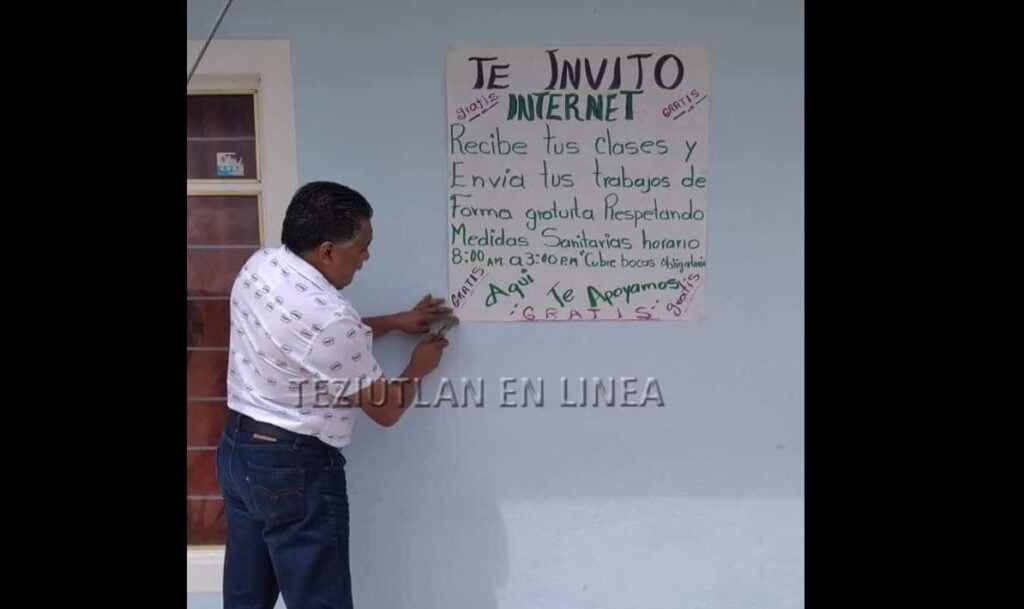 TE INVITO
gratis INTERNET GRATIS
Recibe tus clases y
Envía tus trabajos de
Forma gratuita Respetando
Medidas Sanitarias horario
8:00 AM a 3:00 PM "Cubre bocas obligatorio
GRATIS Aquí Te Apoyamos gratis
GRATIS
TEZIUTLAN EN LINEA